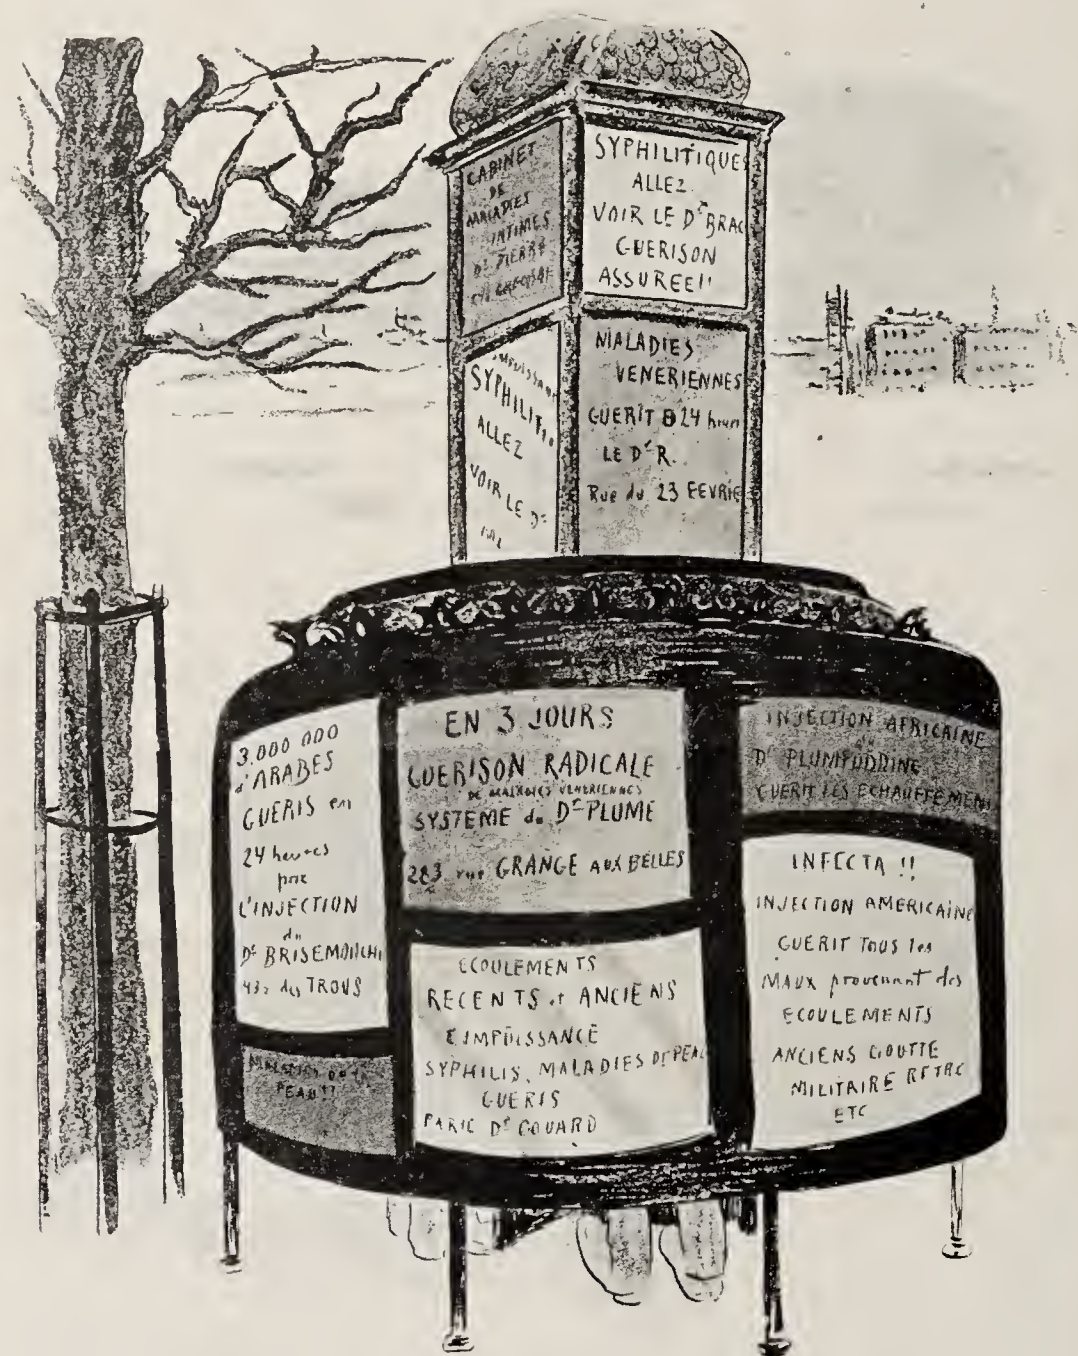 CABINET
DE
MALADIES
INTIMES
Dr PIERRE
SYPHILITIQUES
ALLEZ
VOIR LE Dr BRAC
GUERISON
ASSUREE!!
SYPHILITI
ALLEZ
VOIR LE Dr
MALADIES
VENERIENNES
GUERIT 24 heures
LE Dr R.
Rue du 23 FEVRIE
3.000 000
d'ARABES
GUERIS en
24 heures
par
L'INJECTION
du
Dr BRISEMOUCHE
des TROUS
PEAU!!
EN 3 JOURS
GUERISON RADICALE
DE MALADIES VENERIENNES
SYSTEME du Dr PLUME
283 rue GRANGE AUX BELLES
ECOULEMENTS
RECENTS et ANCIENS
IMPUISSANCE
SYPHILIS, MALADIES DE PEAU
GUERIS
PAR LE Dr GOUARD
INJECTION AFRICAINE
du
Dr PLUMPUDDINE
GUERIT LES ECHAUFFEMENT
INFECTA !!
INJECTION AMERICAINE
GUERIT TOUS les
MAUX provenant des
ECOULEMENTS
ANCIENS GOUTTE
MILITAIRE RETRE
ETC